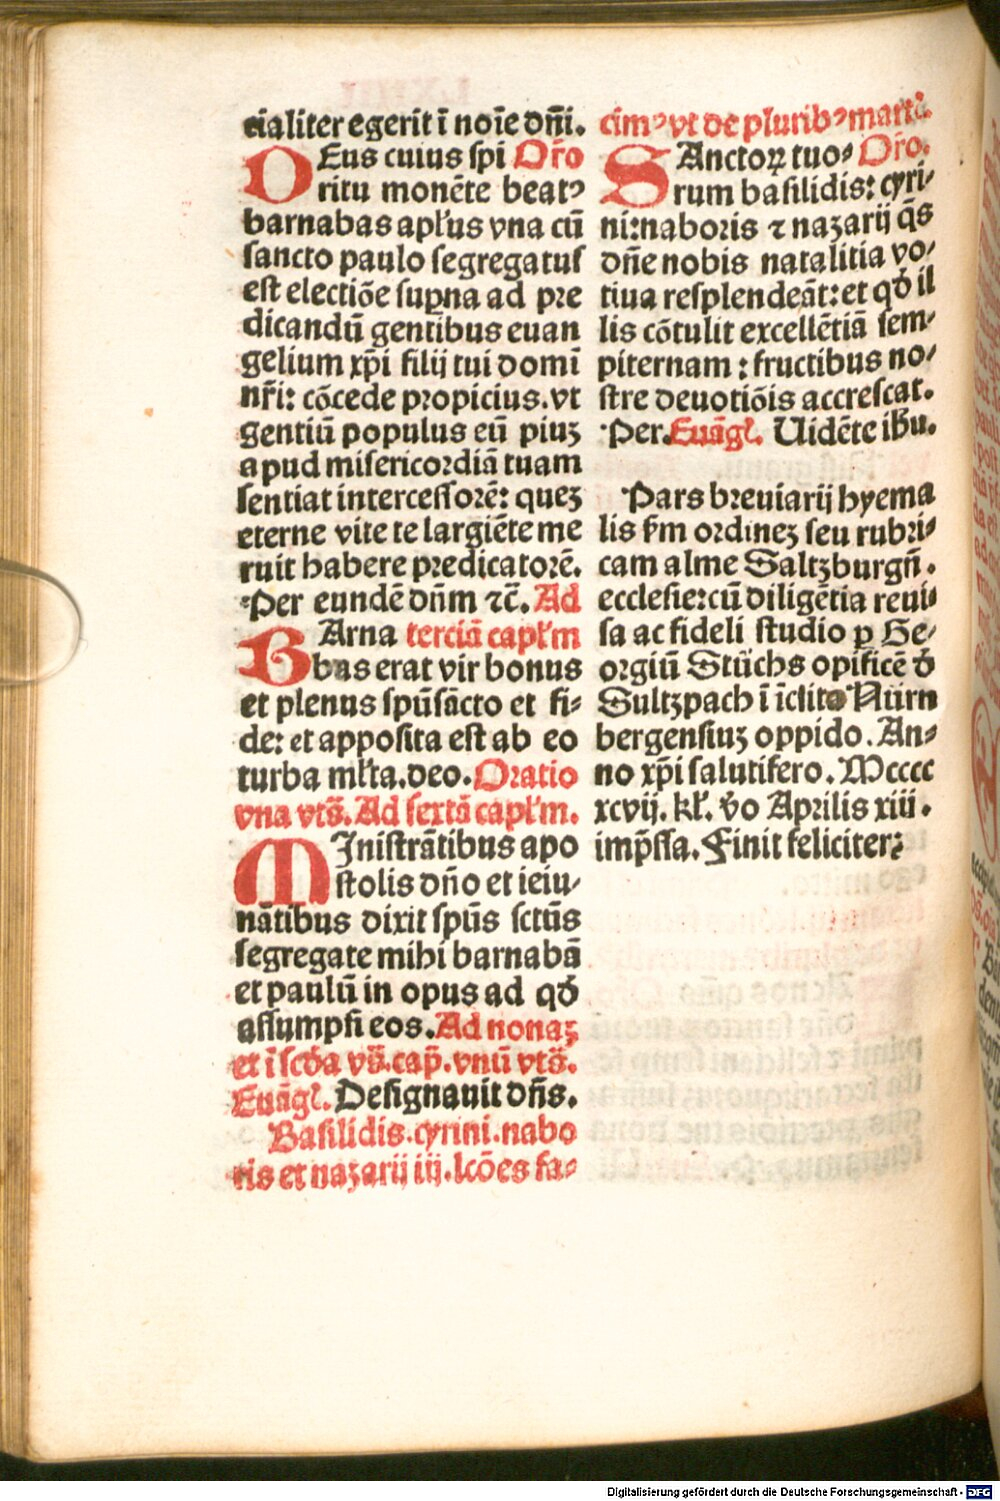 cialiter egerit ī noīe dn̄i.
DEus cuius spi Or̄o
ritu monēte beatꝰ
barnabas apl'us vna cū
sancto paulo segregatus
est electiōe supͣna ad pre
dicandū gentibus euan
gelium xp̄i filij tui domī
nr̄i: cōcede propicius. vt
gentiū populus eū piuꝫ
apud misericordiā tuam
sentiat intercessorē: queꝫ
eterne vite te largiēte me
ruit habere predicatorē.
Per eundē dn̄m ⁊c̄. Ad
BArna terciā capl'm
bas erat vir bonus
et plenus spūsācto et fi⸗
de: et apposita est ab eo
turba ml'ta. deo. Oratio
vna vts̄. Ad sextā capl'm.
MInistrātibus apo
stolis dn̄o et ieiu⸗
nātibus dixit spūs sctūs
segregate mihi barnabā
et paulū in opus ad qd̄
assumpsi eos. Ad nonaꝫ
et ī scd̄a vs̄. cap̄. vnū vts̄.
Euāgl'. Designauit dn̄s.
Basilidis. cyrini. nabo
ris et nazarij iij. lcōes fa⸗
cimꝰ vt de pluribꝰ martꝭ.
SAnctoꝝ tuo⸗ Or̄o.
rum basilidis: cyri⸗
ni: naboris ⁊ nazarij q̄s
dn̄e nobis natalitia vo⸗
tiua resplendeāt: et qd̄ il
lis cōtulit excellētiā sem⸗
piternam: fructibus no⸗
stre deuotiōis accrescat.
Per. Euāgl'. Uidēte ihu.
Pars breuiarij hyema
lis s̄m ordineꝫ seu rubri⸗
cam alme Saltzburgn̄.
ecclesie: cū diligētia reui⸗
sa ac fideli studio ꝑ Ge⸗
orgiū Stüchs opificē d̄
Sultzpach ī īclito Nürn
bergensiuꝫ oppido. An⸗
no xp̄i salutifero. Mcccc
xcvij. kl'. v̄o Aprilis xiii.
imp̄ssa. Finit feliciter:
Digitalisierung gefördert durch die Deutsche Forschungsgemeinschaft - DFG